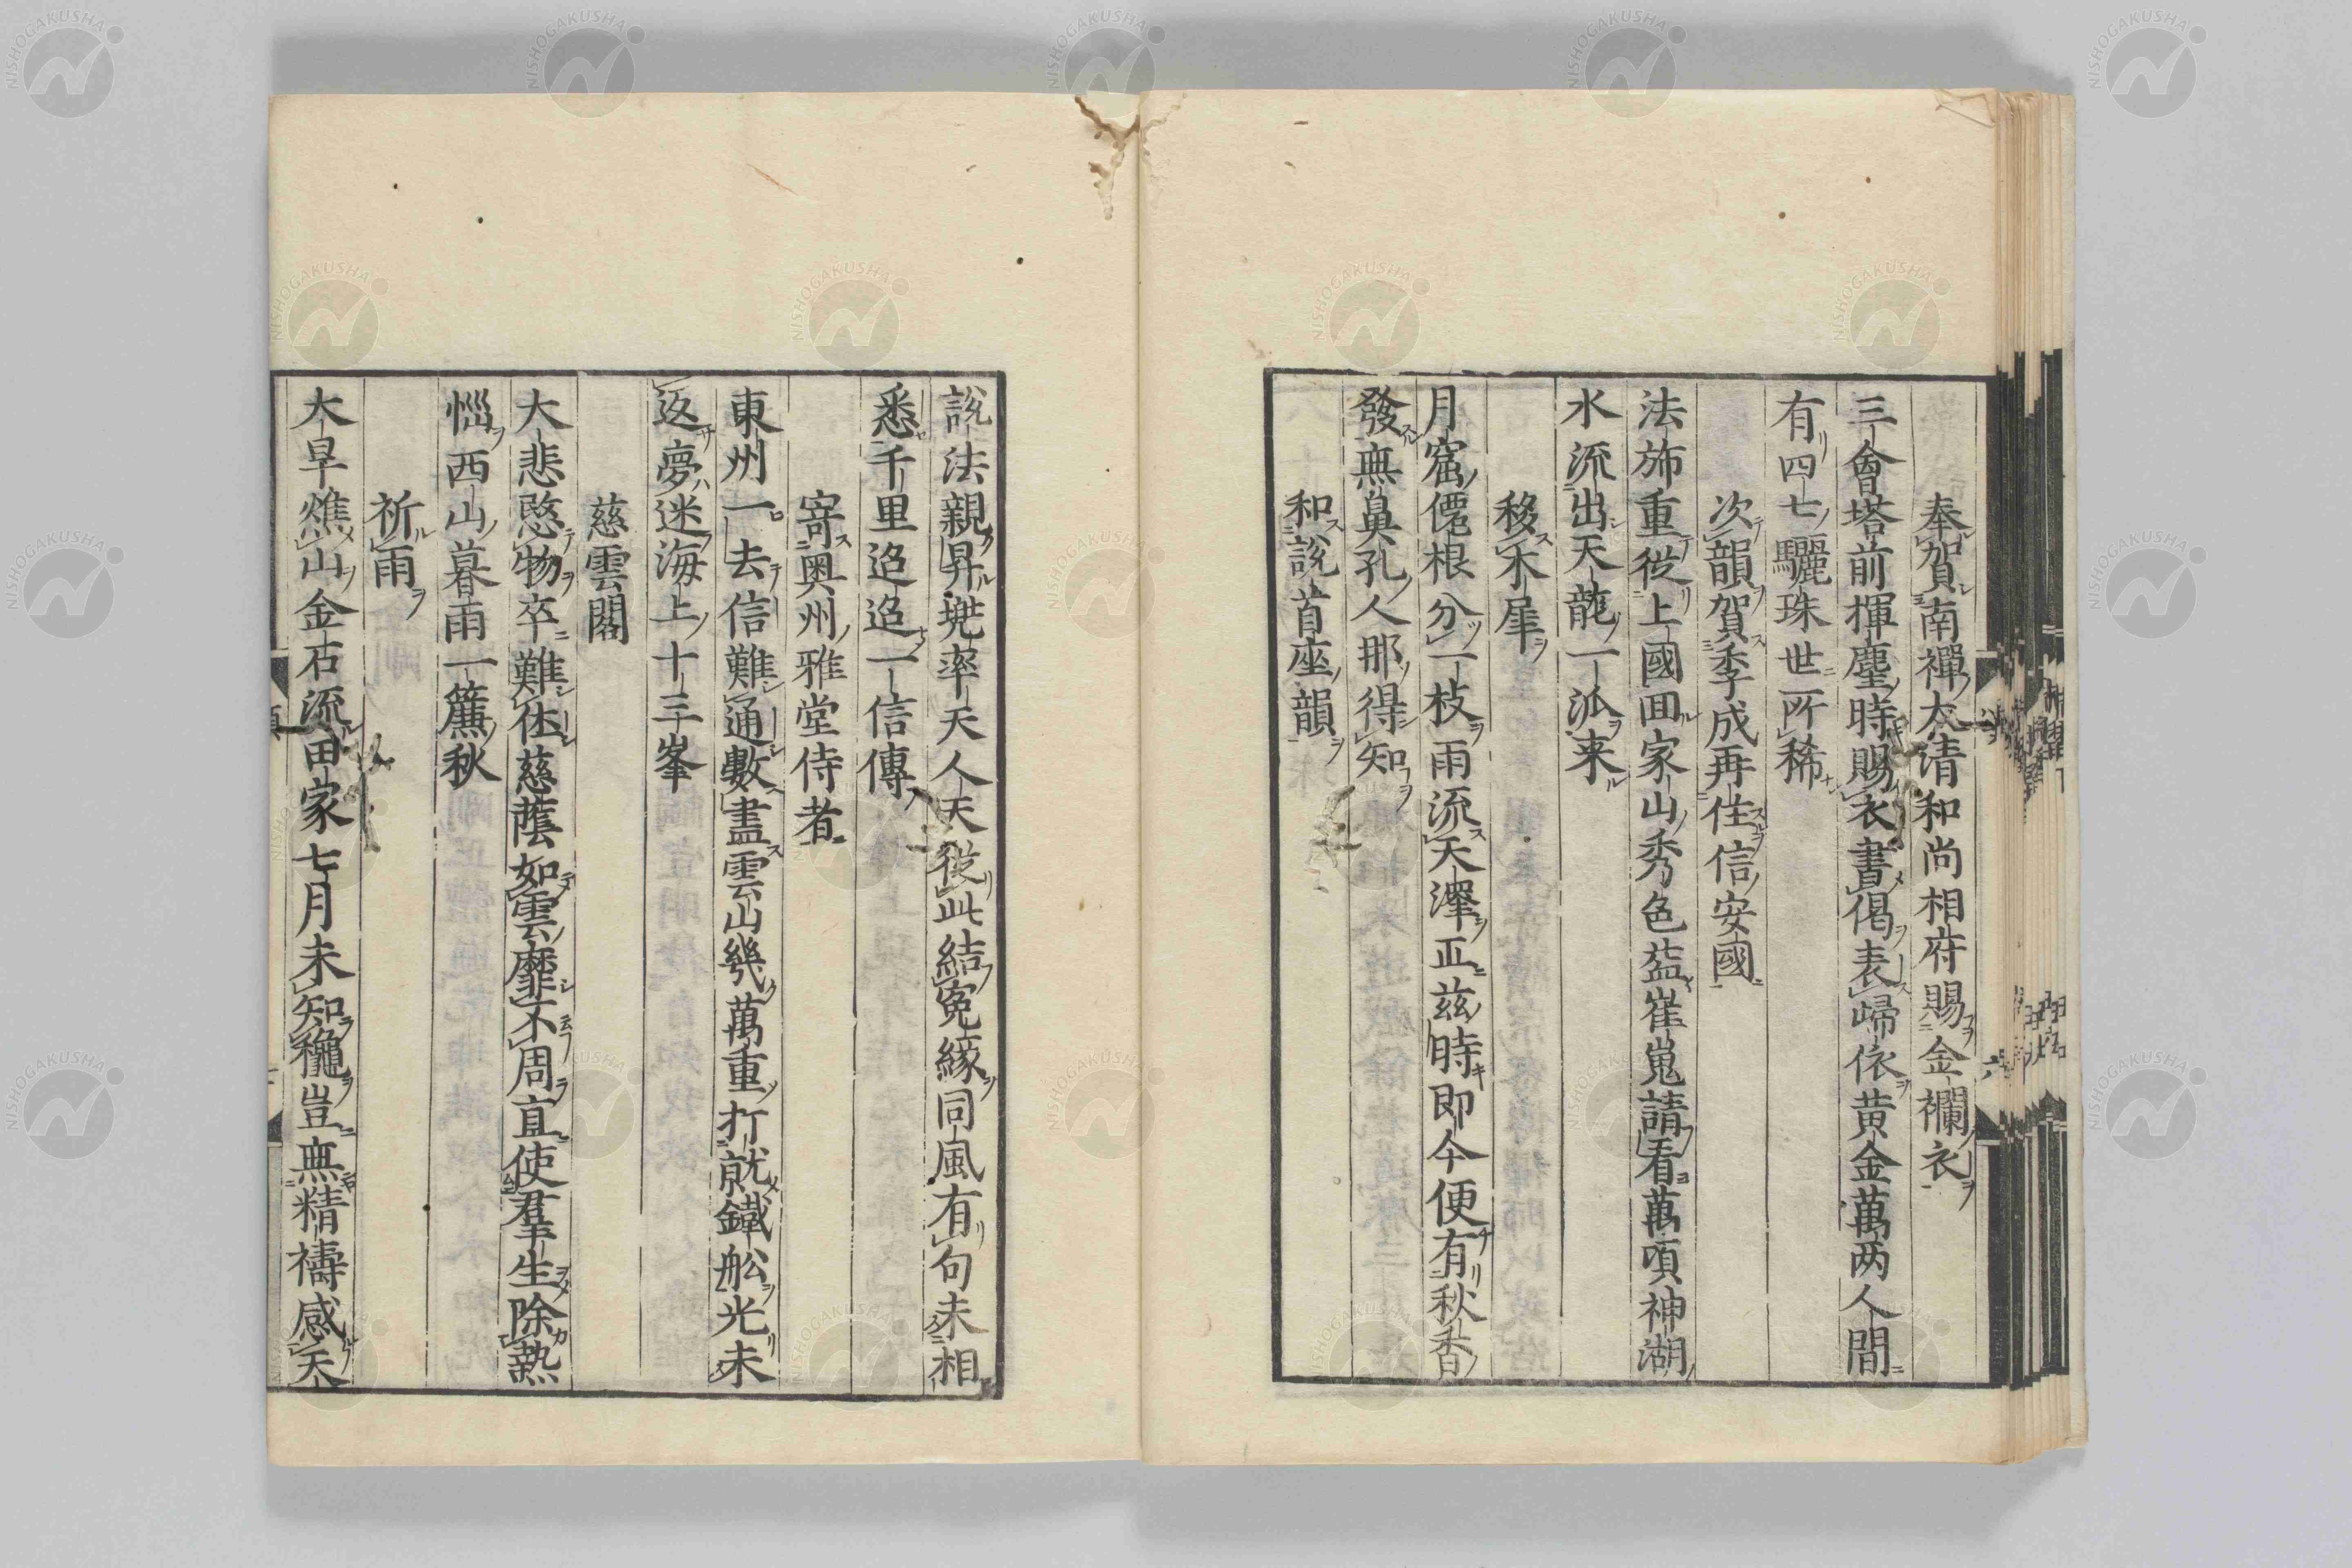 奉賀南禪太清和尚相府賜金襴衣
三會塔前揮麈時賜衣書偈表歸依黄金萬两人間
有四七驪珠世所稀
次韻賀季成再住信安國
法斾重從上國囬家山秀色益崔嵬請看萬頃神湖
水流出天龍一派来
移木犀
月窟僊根分一枝雨流天澤正兹時即今便有秋香
發無鼻孔人那得知
和說首座韻
說法親昇兠率天人天從此結寃緣同風有句未相
悉千里迢迢一信傳
寄奥州雅堂侍者
東州一去信難通數盡雲山幾萬重打就鐵舩光未
返夢迷海上十三峯
慈雲閣
大悲愍物卒難休慈蔭如雲靡不周直使羣生除熱
惱西山暮雨一簾秋
祈雨
大旱燋山金石流田家七月未知穐豈無精禱感天